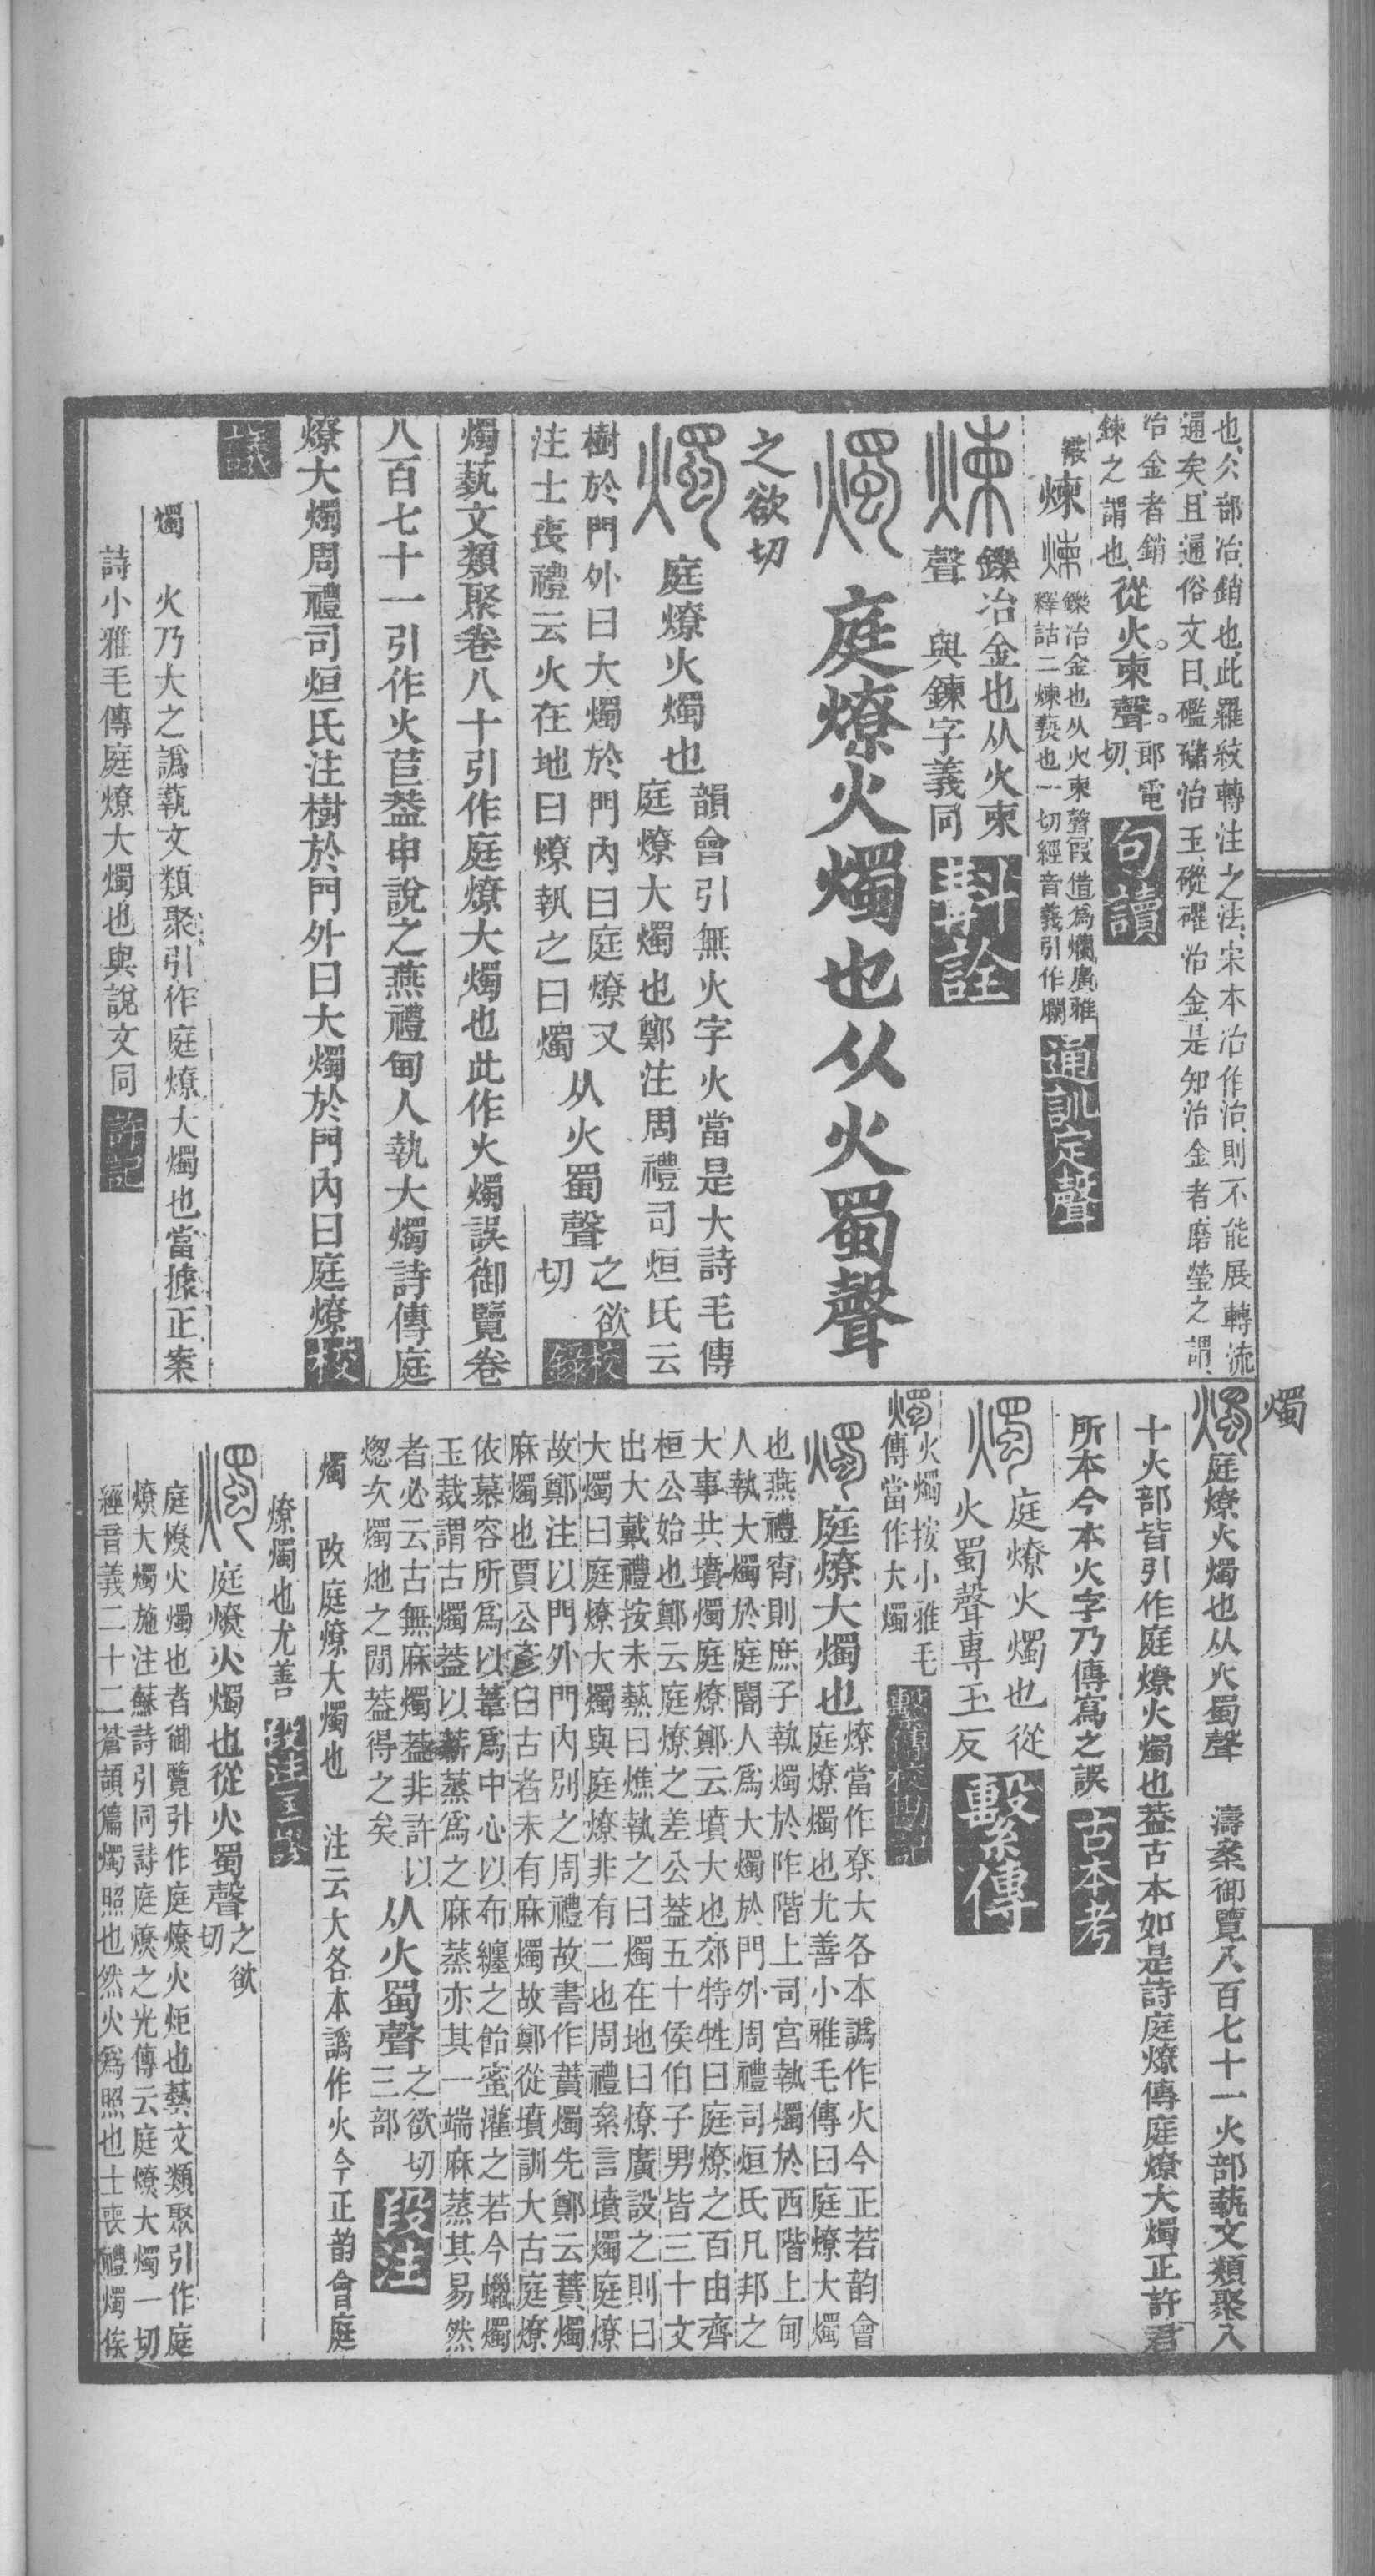 燭
也仌部冶銷也此羅紋轉注之法宋本冶作治則不能展轉流
通矣且通俗文曰礛䃴治玉礛䃴治金是知治金者磨瑩之謂
冶金者銷
鍊之謂也從火柬聲郎電切句讀
煉煉鑠冶金也从火柬聲叚借爲爛廣雅
釋詁二煉爇也一切經音義引作爛通訓定聲
煉鑠冶金也从火柬
聲 與鍊字義同斠詮
燭庭燎火燭也从火蜀聲
之欲切
燭庭燎火燭也韻會引無火字火當是大詩毛傳
庭燎大燭也鄭注周禮司烜氏云
樹於門外曰大燭於門內曰庭燎又
注士喪禮云火在地曰燎執之曰燭从火蜀聲之欲切校錄
燭蓺文類聚卷八十引作庭燎大燭也此作火燭誤御覽卷
八百七十一引作火苣葢申說之燕禮甸人執大燭詩傳庭
燎大燭周禮司烜氏注樹於門外曰大燭於門內曰庭燎校
議
燭 火乃大之譌蓺文類聚引作庭燎大燭也當據正案
詩小雅毛傳庭燎大燭也與說文同許記
燭庭燎火燭也从火蜀聲 濤案御覽八百七十一火部蓺文類聚八
十火部皆引作庭燎火燭也葢古本如是詩庭燎傳庭燎大燭正許君
所本今本火字乃傳寫之誤古本考
燭庭燎火燭也從
火蜀聲專玉反繫傳
燭火燭按小雅毛
傳當作大燭繫傳校勘記
燭庭燎大燭也燎當作尞大各本譌作火今正若韵會
庭燎燭也尤善小雅毛傳曰庭燎大燭
也燕禮宵則庶子執燭於阼階上司宮執燭於西階上甸
人執大燭於庭閽人爲大燭於門外周禮司烜氏凡邦之
大事共墳燭庭燎鄭云墳大也郊特牲曰庭燎之百由齊
桓公始也鄭云庭燎之差公葢五十侯伯子男皆三十文
出大戴禮按未爇曰燋執之曰燭在地曰燎廣設之則曰
大燭曰庭燎大燭與庭燎非有二也周禮亲言墳燭庭燎
故鄭注以門外門內別之周禮故書作蕡燭先鄭云蕡燭
麻燭也賈公彥曰古者未有麻燭故鄭從墳訓大古庭燎
依慕容所爲以葦爲中心以布纏之飴蜜灌之若今蠟燭
玉裁謂古燭葢以薪蒸爲之麻蒸亦其一端麻蒸其易然
者必云古無麻燭葢非許以
熜次燭灺之閒葢得之矣从火蜀聲之欲切
三部段注
燭 改庭燎大燭也 注云大各本譌作火今正韵會庭
燎燭也尤善段注匡謬
燭庭燎火燭也從火蜀聲之欲切
庭燎火燭也者御覽引作庭燎火炬也藝文類聚引作庭
燎大燭施注蘇詩引同詩庭燎之光傳云庭燎大燭一切
經音義二十二蒼頡篇燭照也然火爲照也士喪禮燭俟